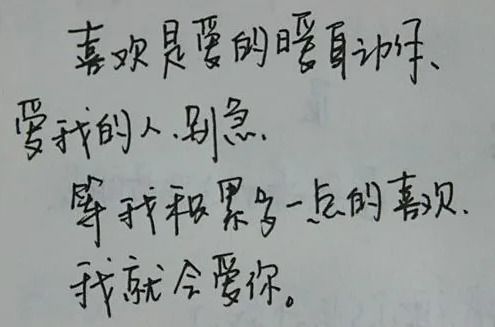 喜欢是爱的暖身动作、
爱我的人.别急.
等我积累多一点的喜欢.
我就会爱你。